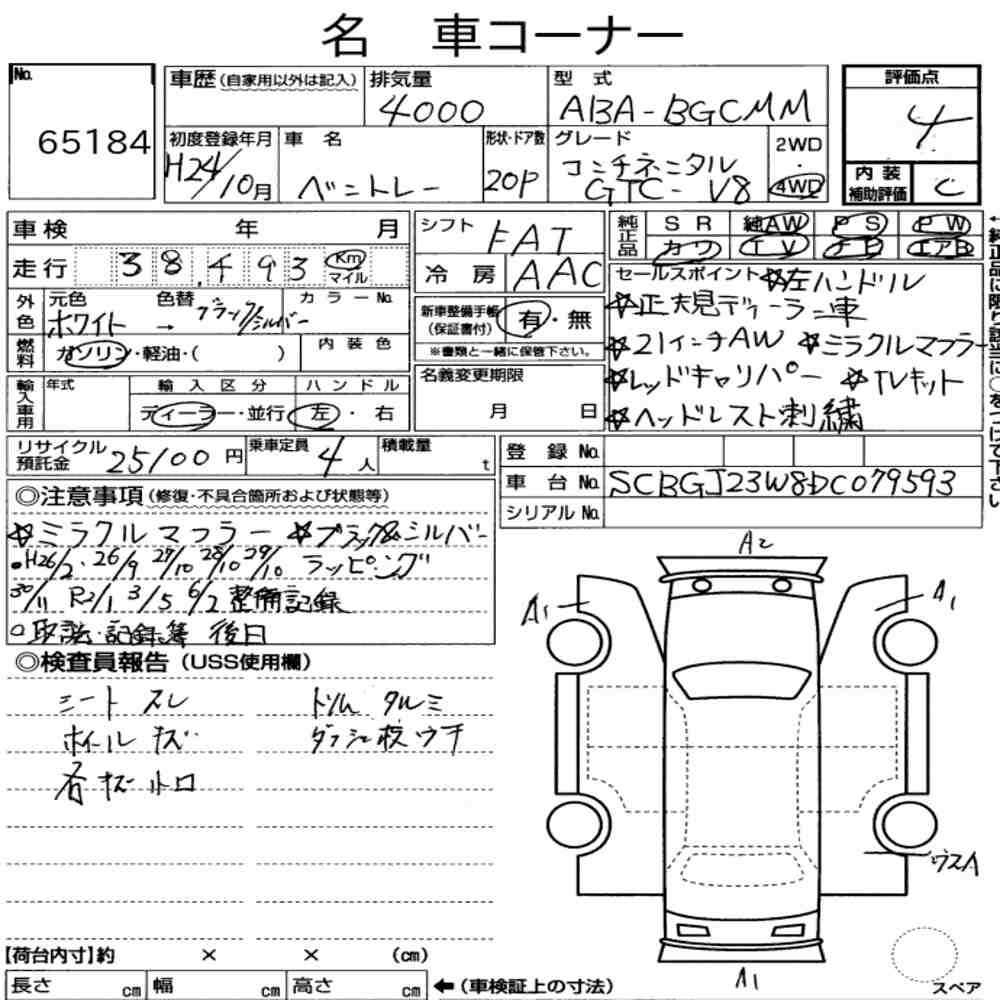 名 車コーナー
No.
65184
車歴(自家用以外は記入)
排気量
4000
型 式
ABA-BGCMM
評価点
4
内装補助評価
C
初度登録年月
H24/10月
車 名
ベントレー
形状・ドア数
2DP
グレード
コンチネンタル
GTC- V8
2WD
・
4WD
車検 年 月
走行 38,493 Km マイル
シフト FAT
冷 房 AAC
純正品 SR 純AW PS PW
カワ TV ナビ エアB
←純正品に限り該当に○をつけて下さい
外色
元色 色替 カラーNo.
ホワイト → ブラック/シルバー
燃料 ガソリン・軽油・( )
内 装 色
新車整備手帳
(保証書付)
有・無
※書類と一緒に保管下さい。
セールスポイント ☆左ハンドル
☆正規ディーラー車
☆21インチAW ☆ミラクルマフラー
☆レッドキャリパー ☆TVキット
☆ヘッドレスト刺繍
輸入車用
年式
輸 入 区 分
ハ ン ド ル
ディーラー・並行
左・右
名義変更期限
月 日
リサイクル預託金 25100 円
乗車定員 4人
積載量 t
登 録 No.
車 台 No. SCBGJ23W8DC079593
シリアル No.
◎注意事項(修復・不具合箇所および状態等)
☆ミラクルマフラー ☆ブラック&シルバー
・H26/2. 26/9 27/10 28/10 29/10 ラッピング
30/11 R2/1 3/5 6/2 整備記録
○取説・記録簿 後日
◎検査員報告(USS使用欄)
シート スレ
トリム タルミ
ホイール キズ
ダッシュ板 ウキ
各キズ トロ
A2
A1
A1
ウスA
A1
スペア
【荷台内寸】約 × × (cm)
長さ cm 幅 cm 高さ cm ←(車検証上の寸法)